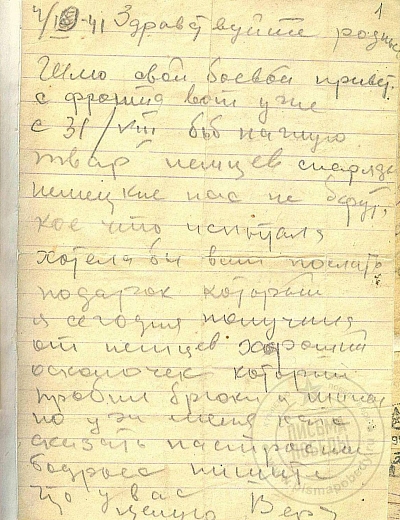 1
4/IX-41 Здравствуйте родные
Шлю свой боевой привет
с фронта вот уже
с 31/VIII бьём
немцев снаряды
немецкие нас не берут,
кое что испытала
хотела бы вам послать
подарок который
я сегодня получила
от немцев хороший
осколочек который
пробил брюки и
но уж меня
сказать настроение
бодрое пишите
что у вас
целую Вера